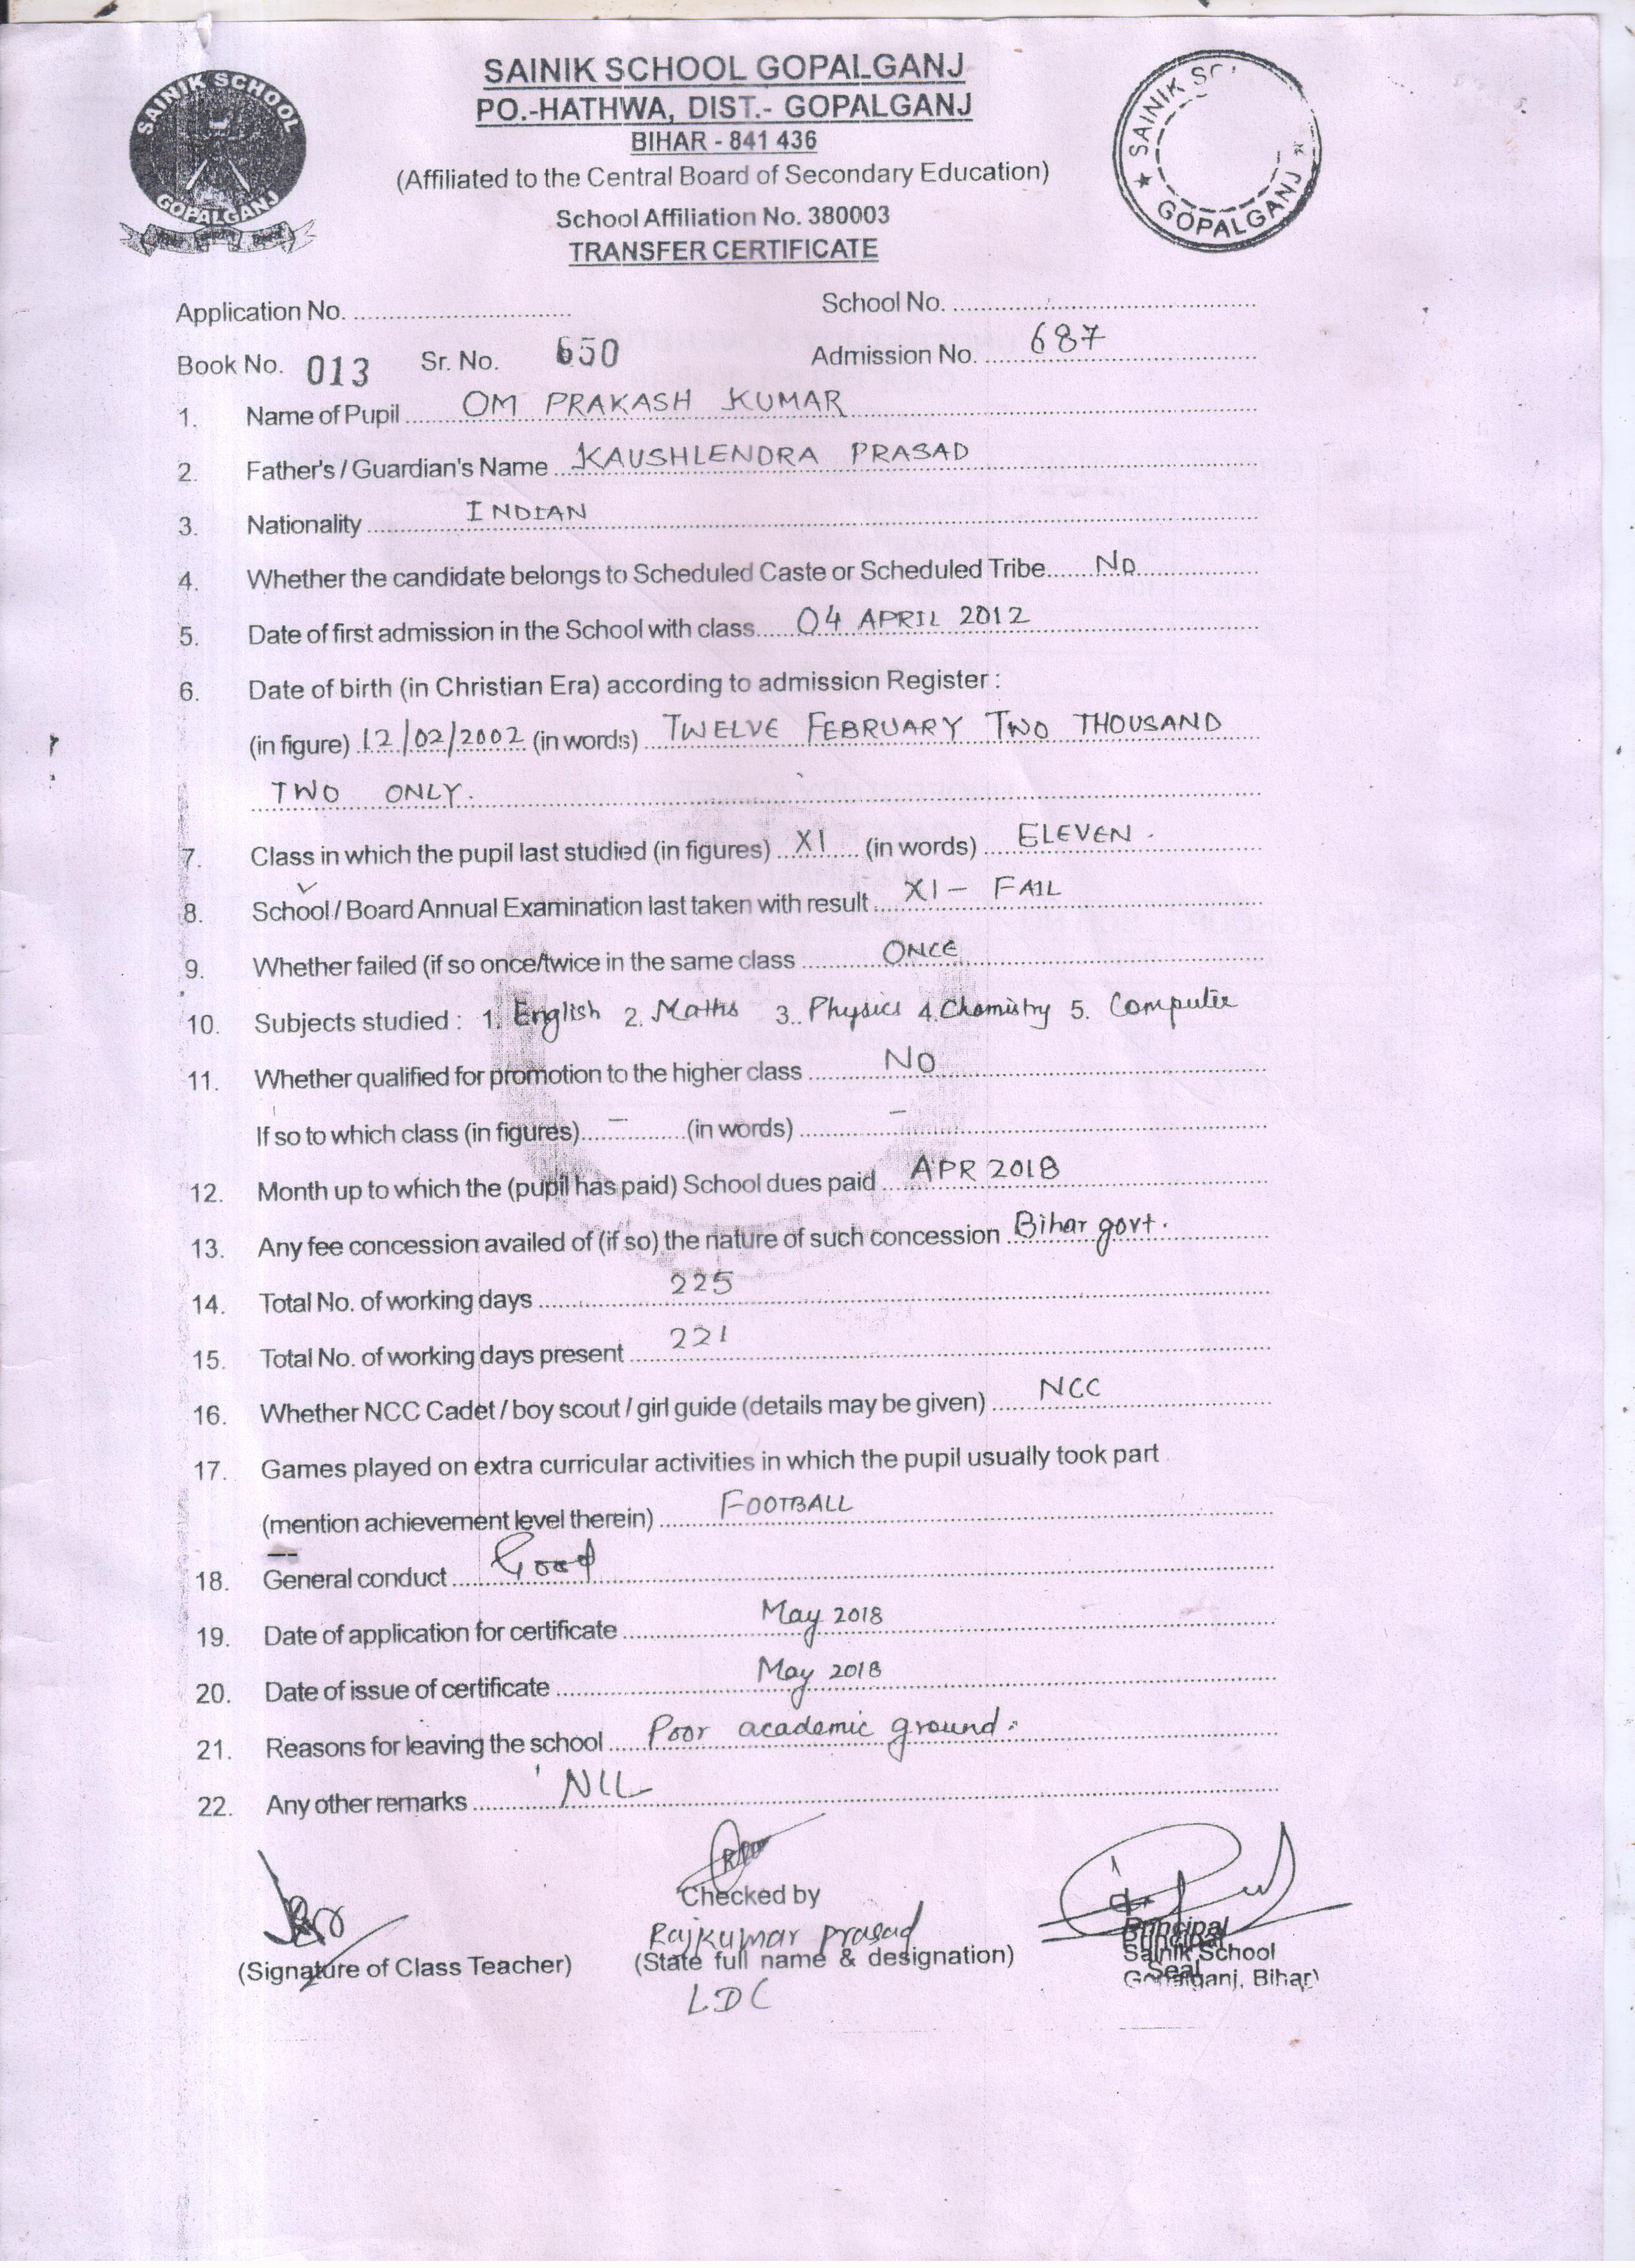 SAINIK SCHOOL
GOPALGANJ
SAINIK SCHOOL GOPALGANJ
PO.-HATHWA, DIST.- GOPALGANJ
BIHAR - 841 436
(Affiliated to the Central Board of Secondary Education)
School Affiliation No. 380003
TRANSFER CERTIFICATE
SAINIK
GOPALGANJ
Application No. ............................... School No. ...............................
Book No. 013 Sr. No. 650 Admission No. 687
1. Name of Pupil OM PRAKASH KUMAR
2. Father's / Guardian's Name KAUSHLENDRA PRASAD
3. Nationality INDIAN
4. Whether the candidate belongs to Scheduled Caste or Scheduled Tribe NO
5. Date of first admission in the School with class 04 APRIL 2012
6. Date of birth (in Christian Era) according to admission Register :
(in figure) 12/02/2002 (in words) TWELVE FEBRUARY TWO THOUSAND
TWO ONLY.
7. Class in which the pupil last studied (in figures) XI (in words) ELEVEN .
8. School / Board Annual Examination last taken with result XI - FAIL
9. Whether failed (if so once/twice in the same class ONCE
10. Subjects studied : 1. English 2. Maths 3. Physics 4. Chemistry 5. Computer
11. Whether qualified for promotion to the higher class NO
If so to which class (in figures) – (in words) –
12. Month up to which the (pupil has paid) School dues paid APR 2018
13. Any fee concession availed of (if so) the nature of such concession Bihar govt.
14. Total No. of working days 225
15. Total No. of working days present 221
16. Whether NCC Cadet / boy scout / girl guide (details may be given) NCC
17. Games played on extra curricular activities in which the pupil usually took part
(mention achievement level therein) FOOTBALL
18. General conduct Good
19. Date of application for certificate May 2018
20. Date of issue of certificate May 2018
21. Reasons for leaving the school Poor academic ground.
22. Any other remarks NIL
Checked by
Rajkumar Prasad
(Signature of Class Teacher) (State full name & designation)
LDC
Principal
Sainik School
Seal
Gopalganj, Bihar)